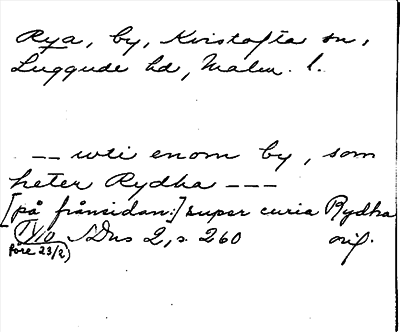 Rya, by, Kvistofta sn,
Luggude hd, Malm. l.
— — uti enom by, som
heter Rydha — — —
[på frånsidan:] super curia Rydha
1410 SDns 2, s. 260 orig.
(före 23/2)